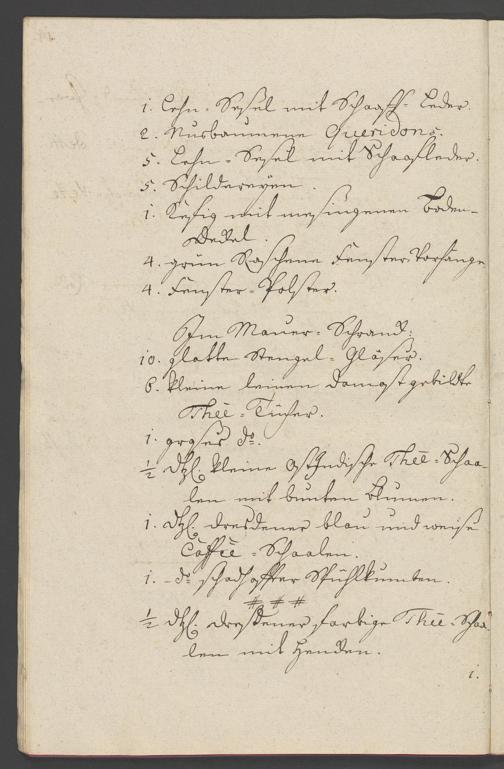 1. Lehn-Sesel mit Schaaff-Leder.
2. Nusbaumene Queridons.
5. Lehn-Sesel mit Schaafleder.
5. Schildereyen.
1. Kefig mit mesingenen Boden-
Dekel.
4. grün Raschene Fenster Vorhänge
4. Fenster-Polster.
Im Mauer-Schrank:
10. glatte Stengel-Gläser.
6. kleine leinen Damast gebildte
Thee-Tücher.
1. groses do.
½ dzl. kleine Ostindische Thee-Schaa-
len mit bunten Blumen.
1. dzl. dresdener blau und weise
Caffee-Schaalen.
1. do schadhaffter Spühlkumten.
# # #
½ dzl. dresdener farbige Thee-Schaa-
len mit Henden.
1.